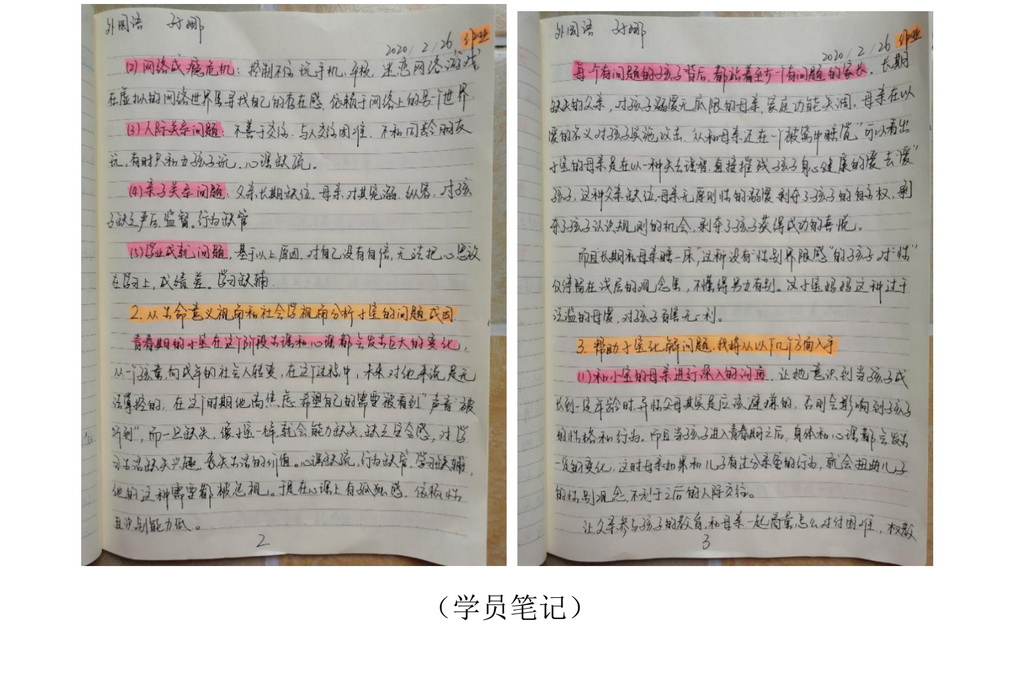 外国语 孙娜
2020/2/26 作业
(2) 网络成瘾危机：控制不住玩手机、平板，迷恋网络游戏
在虚拟的网络世界里寻找自己的存在感，依赖于网络上的另一个世界
(3) 人际关系问题：不善于交际，与人交往困难，不和同龄的孩
玩，有时只和女孩子玩，心理缺流。
(4) 亲子关系问题：父亲长期缺位，母亲对其宠溺、纵容，对孩
子缺乏声启，监督，行为缺管
(5) 学业成就问题：基于以上原因，对自己没有自信，无法把心思放
在学习上，成绩差。学习缺辅。
2. 从生命意义视角和社会学视角分析小宝的问题成因
青春期的小宝在这个阶段生理和心理都会发生巨大的变化，
从一个孩童向成年的社会人转变，在这个过程中，未来对他来说是无
法掌控的，在这个时期他焦虑，希望自己的需要“被看到”声音“被
听到”，而一旦缺失，像小宝一样，就会能力缺失，缺乏安全感，对学
习生活缺失兴趣，丧失生活的价值。心理缺流，行为缺管，学习缺辅，
他的这种需要都被忽视。于是在心理上有孤独感，依赖性
且识别能力低。
2
外国语 孙娜
2020/2/26 作业
每个有问题的孩子背后，都站着至少一个有问题的家长。长期
缺失的父亲，对孩子溺爱无底限的母亲，家庭功能失调，母亲在以
爱的名义对孩子实施攻击，从和母亲还在一个被窝中睡觉”可以看出
小宝的母亲是在以一种失去理智，直接摧残孩子身心健康的爱去“爱”
孩子，这种父亲缺位，母亲无原则性的溺爱剥夺了孩子的自主权，剥
夺了孩子认识规则的机会，剥夺了孩子获得成功的喜悦。
而且长期和母亲睡一床，“这种没有“性别界限感”的孩子，对“性”
仅停留在浅层的观念里，不懂得男女有别。汉小宝妈妈这种过于
泛滥的母爱，对孩子百害无一利。
3. 帮助小宝化解问题，我将从以下几个方面入手
(1) 和小宝的母亲进行深入的沟通，让她意识到当孩子成
长到一定年龄时，异性父母其实是应该避嫌的，否则会影响到孩子
的性格和行为。而且当孩子进入青春期之后，身体和心理都会发生
一定的变化，这时母亲如果和儿子有过分亲密的行为，就会扭曲儿子
的性别观念，不利于之后的人际交往。
让父亲参与孩子的教育，和母亲一起商量怎么对付困难，权教
3
（学员笔记）